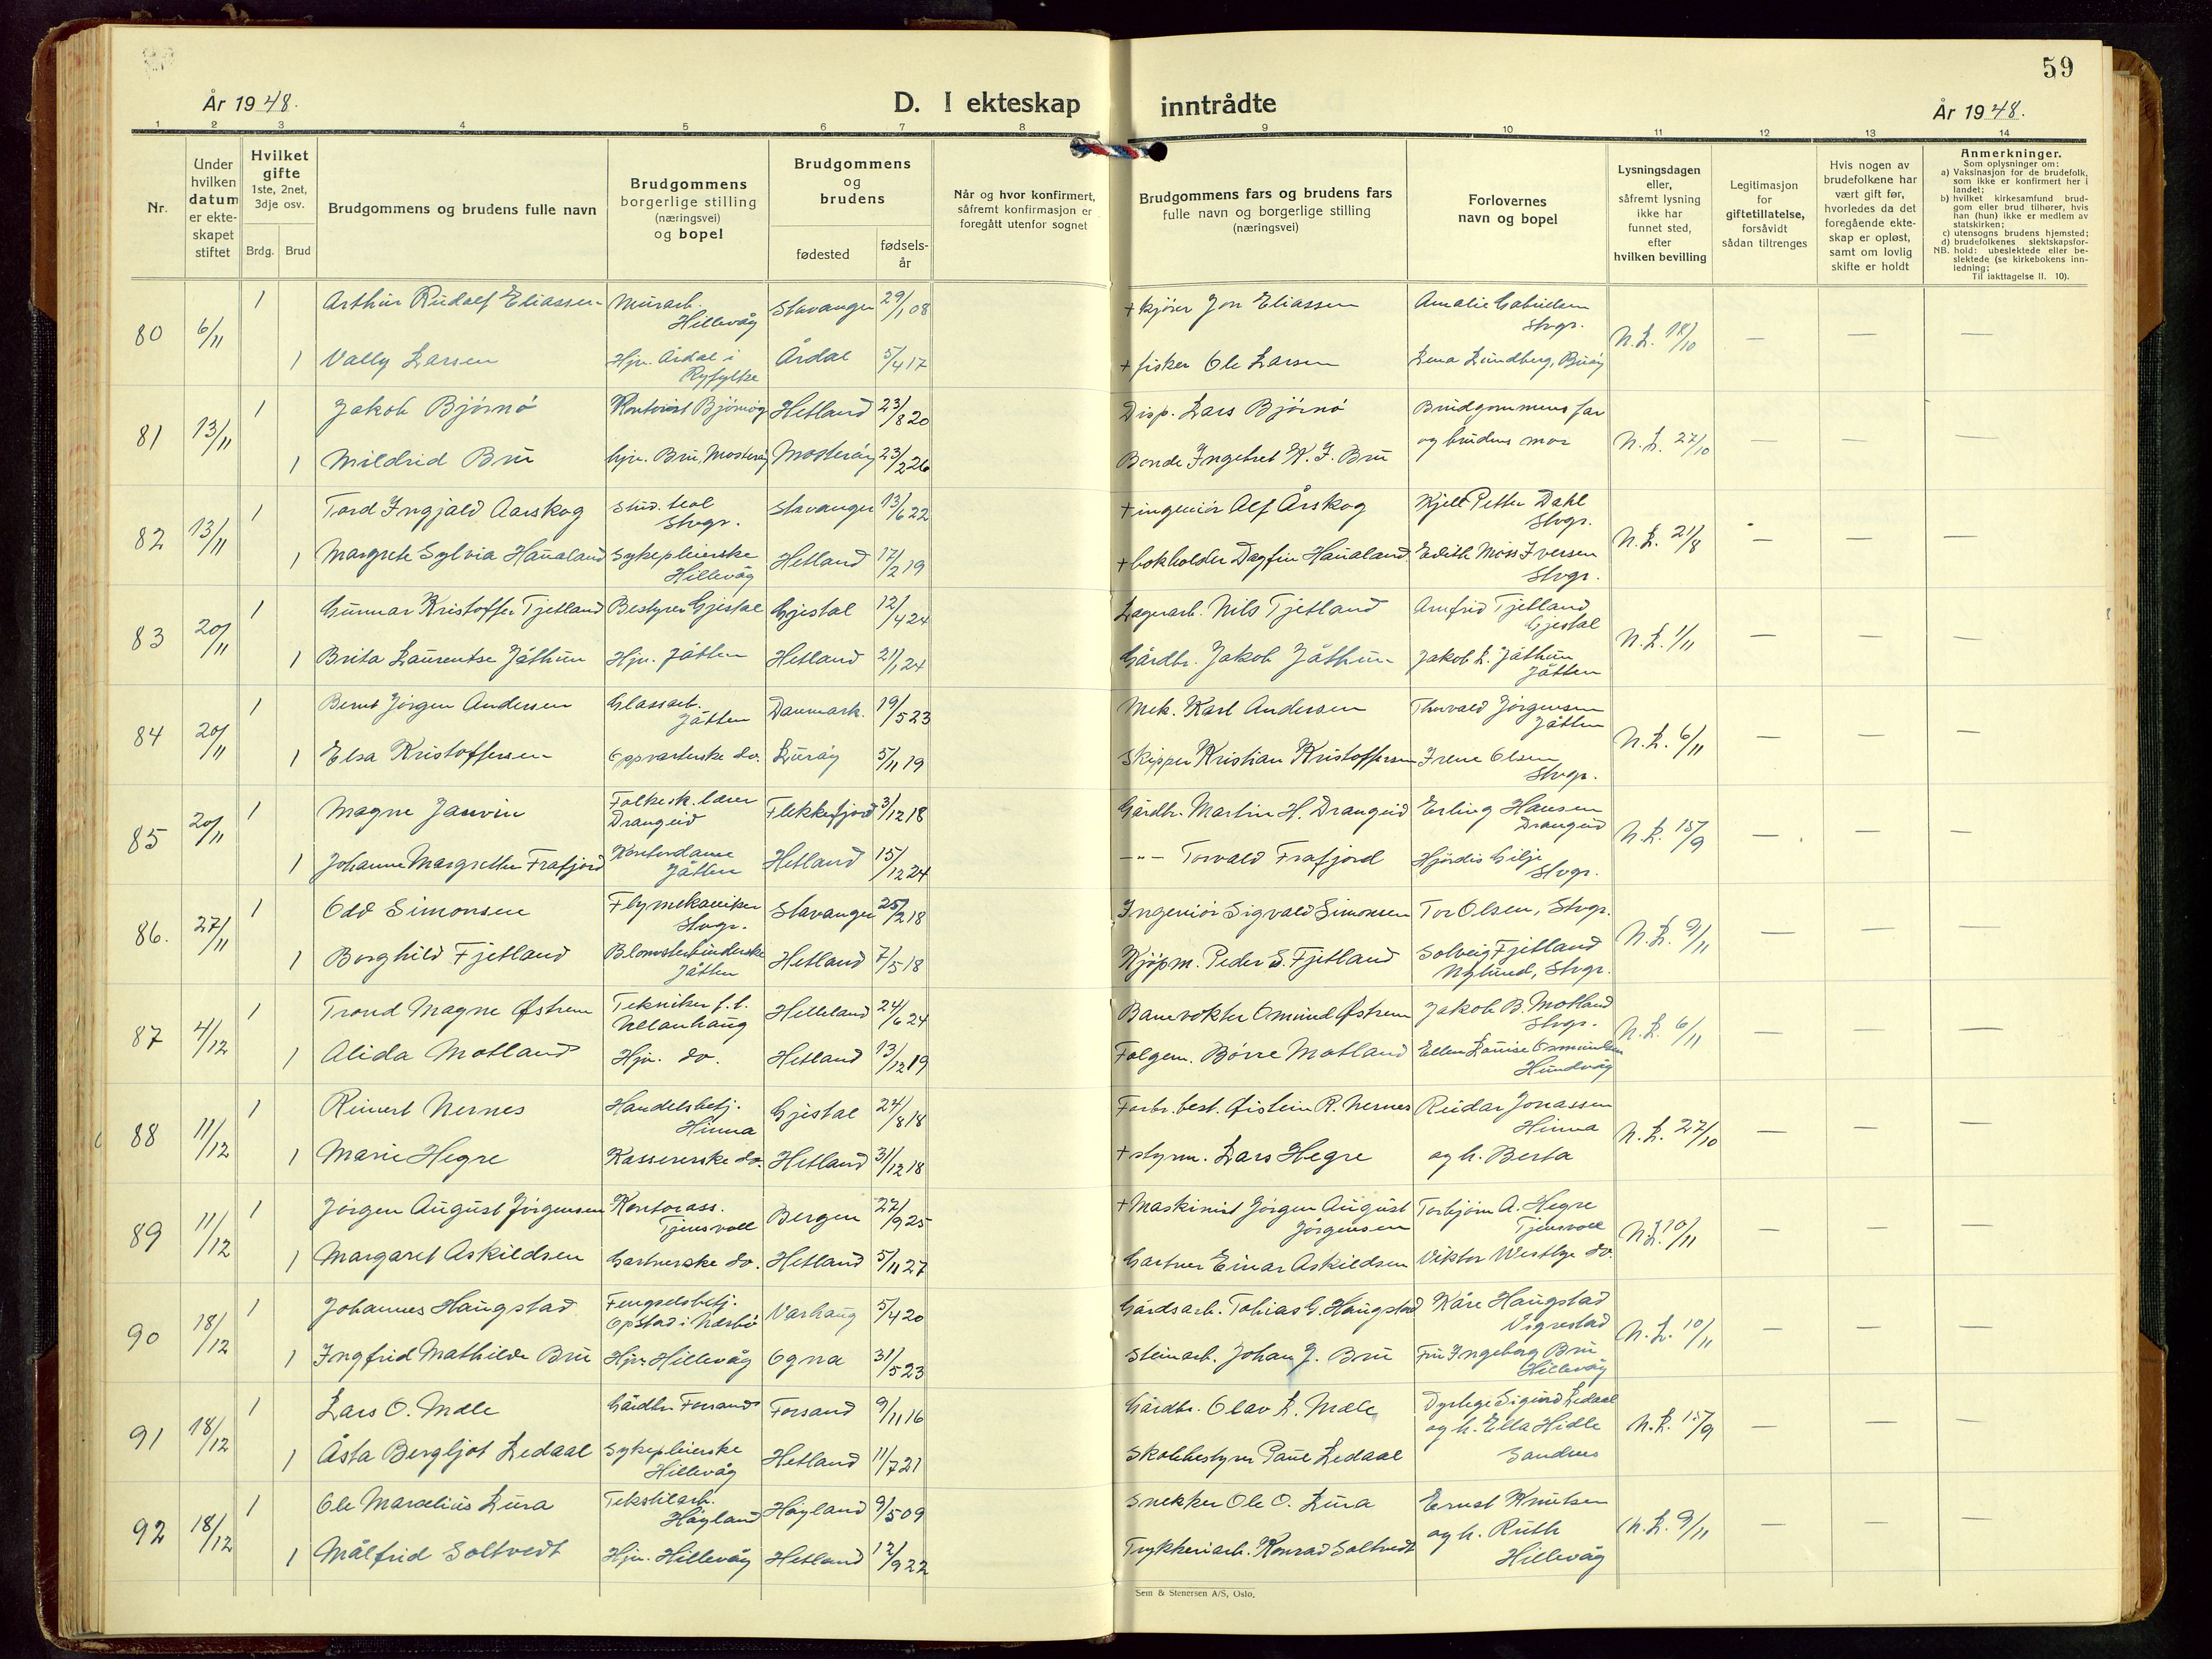 59
År 1948.
D. I ekteskap inntrådte
År 1948.
1 2 3 4 5 6 7 8 9 10 11 12 13 14
Nr.
Under hvilken datum er ekteskapet stiftet
Hvilket gifte
1ste, 2net, 3dje osv.
Brdg. Brud
Brudgommens og brudens fulle navn
Brudgommens borgerlige stilling (næringsvei) og bopel
Brudgommens og brudens
fødested
fødselsår
Når og hvor konfirmert, såfremt konfirmasjon er foregått utenfor sognet
Brudgommens fars og brudens fars fulle navn og borgerlige stilling (næringsvei)
Forlovernes navn og bopel
Lysningsdagen eller, såfremt lysning ikke har funnet sted, efter hvilken bevilling
Legitimasjon for giftetillatelse, forsåvidt sådan tiltrenges
Hvis nogen av brudefolkene har vært gift før, hvorledes da det foregående ekteskap er opløst, samt om lovlig skifte er holdt
Anmerkninger.
Som oplysninger om:
a) Vaksinasjon for de brudefolk, som ikke er konfirmert her i landet;
b) hvilket kirkesamfund brudgom eller brud tilhører, hvis han (hun) ikke er medlem av statskirken;
c) utensogns brudens hjemsted;
d) brudefolkenes slektskapsforhold: ubeslektede eller beslektede (se kirkebokens innledning;
NB. Til iakttagelse II. 10).
80 6/11 1 Arthur Rudolf Eliassen Murarb. Hillevåg Stavanger 29/1 08 + kjører Jon Eliassen Amalie Gabrielsen Stvgr. N.L. 18/10 — — —
1 Vally Larsen Hjv. Årdal i Ryfylke Årdal 5/4 17 + fisker Ole Larsen Lena Lundberg, Buøy
81 13/11 1 Jakob Bjørnø Kontorist Bjørnøy Hetland 23/8 20 Disp. Lars Bjørnø Brudgommens far N.L. 27/10 — — —
1 Mildrid Bru hjv. Bru, Mosterøy Mosterøy 23/2 26 Bonde Ingebret K. J. Bru og brudens mor
82 13/11 1 Tord Ingjald Aarskog Stud. teol Stvgr. Stavanger 13/6 22 + ingeniør Alf Årskog Kjell Petter Dahl Stvgr. N.L. 21/8 — — —
1 Margrete Sylvia Haualand Sykepleierske Hillevåg Hetland 17/2 19 + bokholder Dagfin Haualand Edith Moss Iversen Stvgr.
83 20/11 1 Gunnar Kristoffer Tjetland Bestyrer Gjestal Gjestal 12/4 24 Lagerarb. Nils Tjetland Arnfrid Tjetland Gjestal N.L. 1/11 — — —
1 Brita Laurentse Jåthun Hjv. Jåtten Hetland 21/1 24 Gårdbr. Jakob Jåthun Jakob L. Jåthun Jåtten
84 20/11 1 Bernt Jörgen Andersen Glassarb. Jåtten Danmark. 19/5 23 Mek. Karl Andersen Thorvald Jörgensen Jåtten N.L. 6/11 — — —
1 Elsa Kristoffersen Oppvarterske do. Lurøy 5/11 19 Skipper Kristian Kristoffersen Irene Olsen Stvgr.
85 20/11 1 Magne Janvin Folkesk. lærer Drangeid Flekkefjord 3/12 18 Gårdbr. Martin H. Drangeid Erling Hansen Drangeid N.L. 15/9 — — —
1 Johanne Margrethe Frafjord Kontordame Jåtten Hetland 15/12 24 —"— Torvald Frafjord Hjördis Gilje Stvgr.
86. 27/11 1 Odd Simonsen Flymekaniker Stvgr. Stavanger 25/2 18 Ingeniör Sigvald Simonsen Tor Olsen, Stvgr. N.L. 9/11 — — —
1 Borghild Fjetland Blomsterbinderske Jåtten Hetland 7/5 18 Kjöpm. Peder S. Fjetland Solveig Fjetland Nylund, Stvgr.
87 4/12 1 Trond Magne Østrem Tekniker f.t. Ullanhaug Helleland 24/6 24 Banevokter Omund Østrem Jakob B. Motland Stvgr. N.L. 6/11 — — —
1 Alida Motland Hjv. do. Hetland 13/12 19 Folgem. Börre Motland Ellen Louise Osmundsen Hundvåg
88 11/12 1 Reinert Nernes Handelsbetj. Hinna Gjestal 24/8 18 Forbr. best. Øistein R. Nernes Reidar Jonassen Hinna N.L. 27/10 — — —
1 Marie Hegre Kassererske do. Hetland 31/12 18 + styrm. Lars Hegre og h. Berta
89 11/12 1 Jörgen August Jörgensen Kontorass. Tjensvoll Bergen 27/9 25 + Maskinist Jörgen August Jörgensen Torbjörn A. Hegre Tjensvoll N.L. 10/11 — — —
1 Margaret Askildsen Gartnerske do. Hetland 5/11 27 Gartner Einar Askildsen Viktor Westbye do.
90 18/12 1 Johannes Haugstad Fengselsbetj. Opstad i Nærbø Varhaug 5/4 20 Gårdsarb. Tobias G. Haugstad Kåre Haugstad Vigrestad N.L. 10/11 — — —
1 Ingfrid Mathilde Bru Hjv. Hillevåg Ogna 31/5 23 Steinarb. Johan J. Bru Fru Ingeborg Bru Hillevåg
91 18/12 1 Lars O. Mæle Gårdbr. Forsand Forsand 9/11 16 Gårdbr. Olav L. Mæle Dyrlege Sigurd Ledaal N.L. 15/9 — — —
1 Åsta Bergljot Ledaal Sykepleierske Hillevåg Hetland 11/7 21 Skolebestyrer Paul Ledaal og h. Ella Hidle Sandnes
92 18/12 1 Ole Marcelius Lura Tekstilarb. Höyland Höyland 9/5 09 Snekker Ole O. Lura Ernst Knutsen N.L. 9/11 — — —
1 Målfrid Soltvedt Hjv. Hillevåg Hetland 12/9 22 Trykkeriarb. Konrad Soltvedt og h. Ruth Hillevåg
Sem & Stenersen A/S, Oslo.